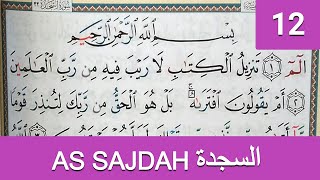 12
بِسْمِ اللَّهِ الرَّحْمَٰنِ الرَّحِيمِ
الٓمٓ ۝١ تَنزِيلُ الْكِتَٰبِ لَا رَيْبَ فِيهِ مِن رَّبِّ الْعَٰلَمِينَ
۝٢ أَمْ يَقُولُونَ افْتَرَىٰهُ ۚ بَلْ هُوَ الْحَقُّ مِن رَّبِّكَ لِتُنذِرَ قَوْمًا
AS SAJDAH السجدة